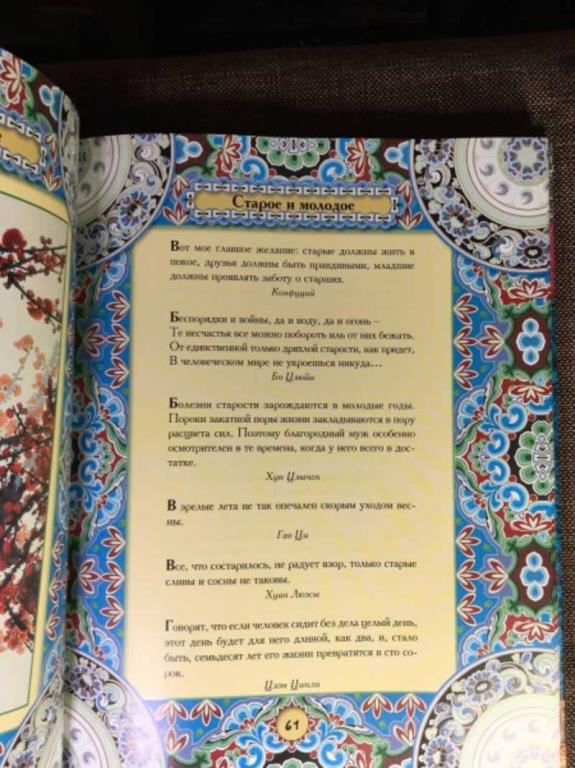 Старое и молодое
Вот мое главное желание: старые должны жить в
покое, друзья должны быть правдивыми, младшие
должны проявлять заботу о старших.
Конфуций
Беспорядки и войны, да и воду, да и огонь –
Те несчастья все можно побороть иль от них бежать.
От единственной только дряхлой старости, как придет,
В человеческом мире не укроешься никуда...
Бо Цзюйи
Болезни старости зарождаются в молодые годы.
Пороки закатной поры жизни закладываются в пору
расцвета сил. Поэтому благородный муж особенно
осмотрителен в те времена, когда у него всего в дос-
татке.
Хун Цзычен
В зрелые лета не так опечален скорым уходом вес-
ны.
Гао Ци
Все, что состарилось, не радует взор, только старые
сливы и сосны не таковы.
Хуан Люэсы
Говорят, что если человек сидит без дела целый день,
этот день будет для него длиной, как два, и, стало
быть, семьдесят лет его жизни превратятся в сто со-
рок.
Цзэн Цинли
61